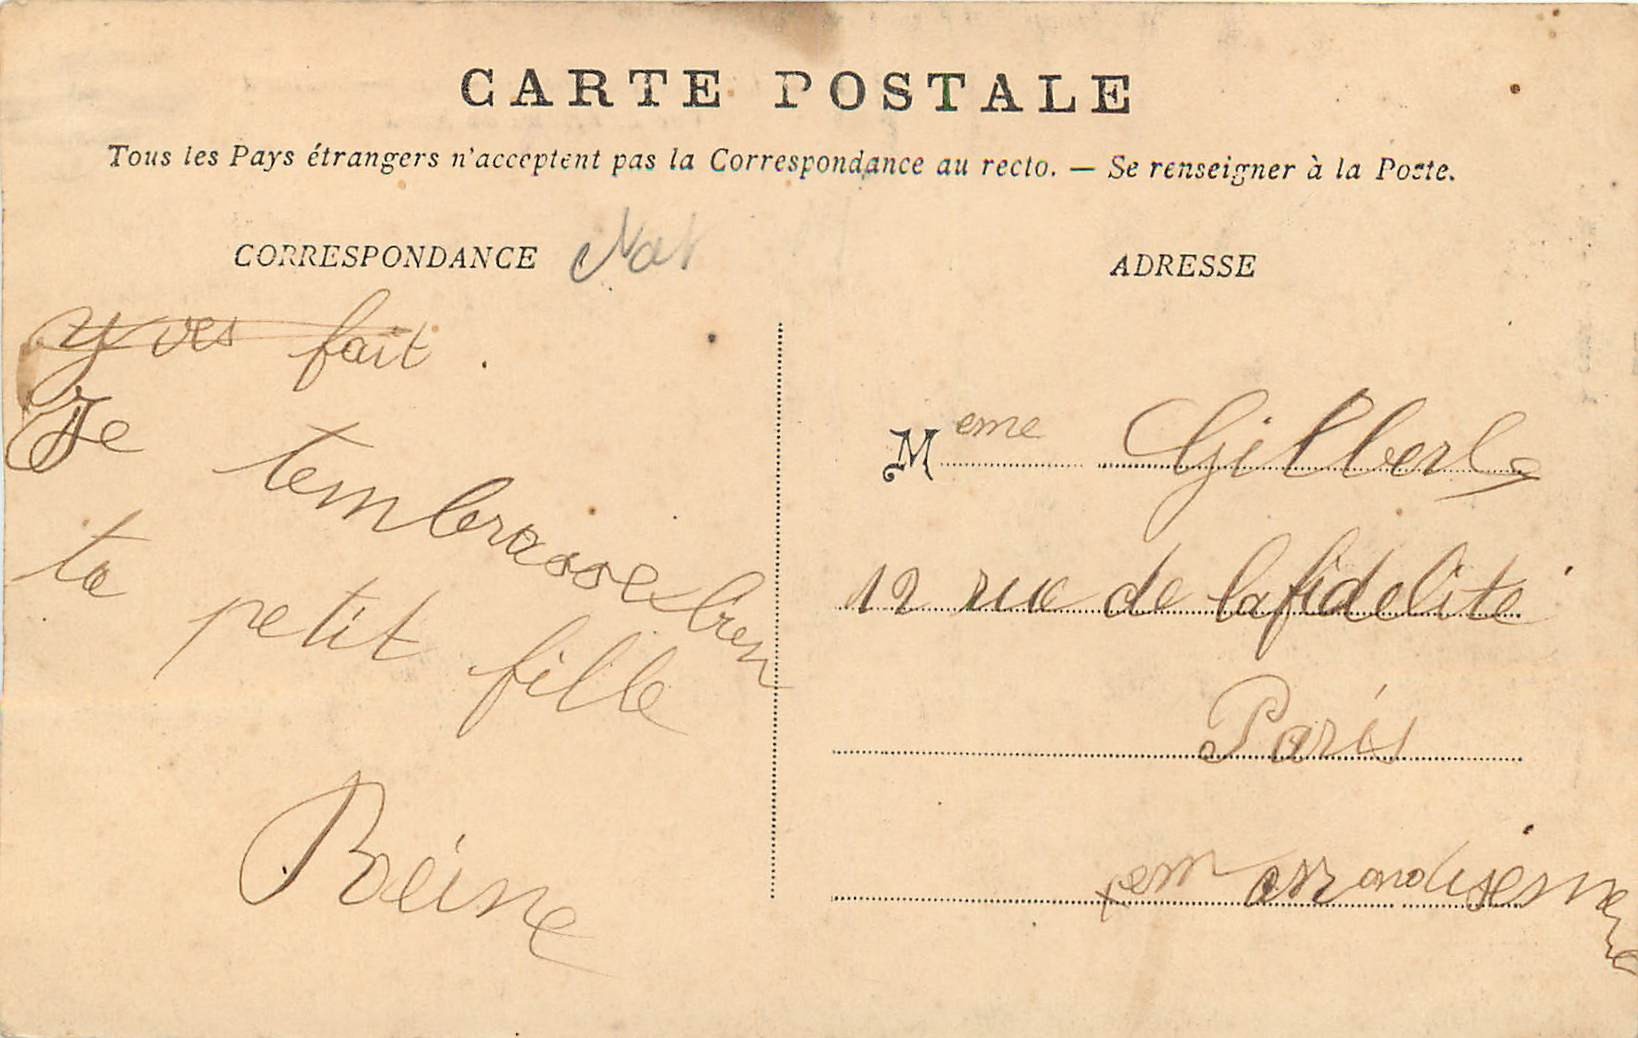 CARTE POSTALE
Tous les Pays étrangers n'acceptent pas la Correspondance au recto. — Se renseigner à la Poste.
CORRESPONDANCE
ADRESSE
Yves fait.
Je tembrasses bien
ta petit fille
Reine
Meme Gilbert
12 rue de la fidelité
Paris
xem arrondisemene